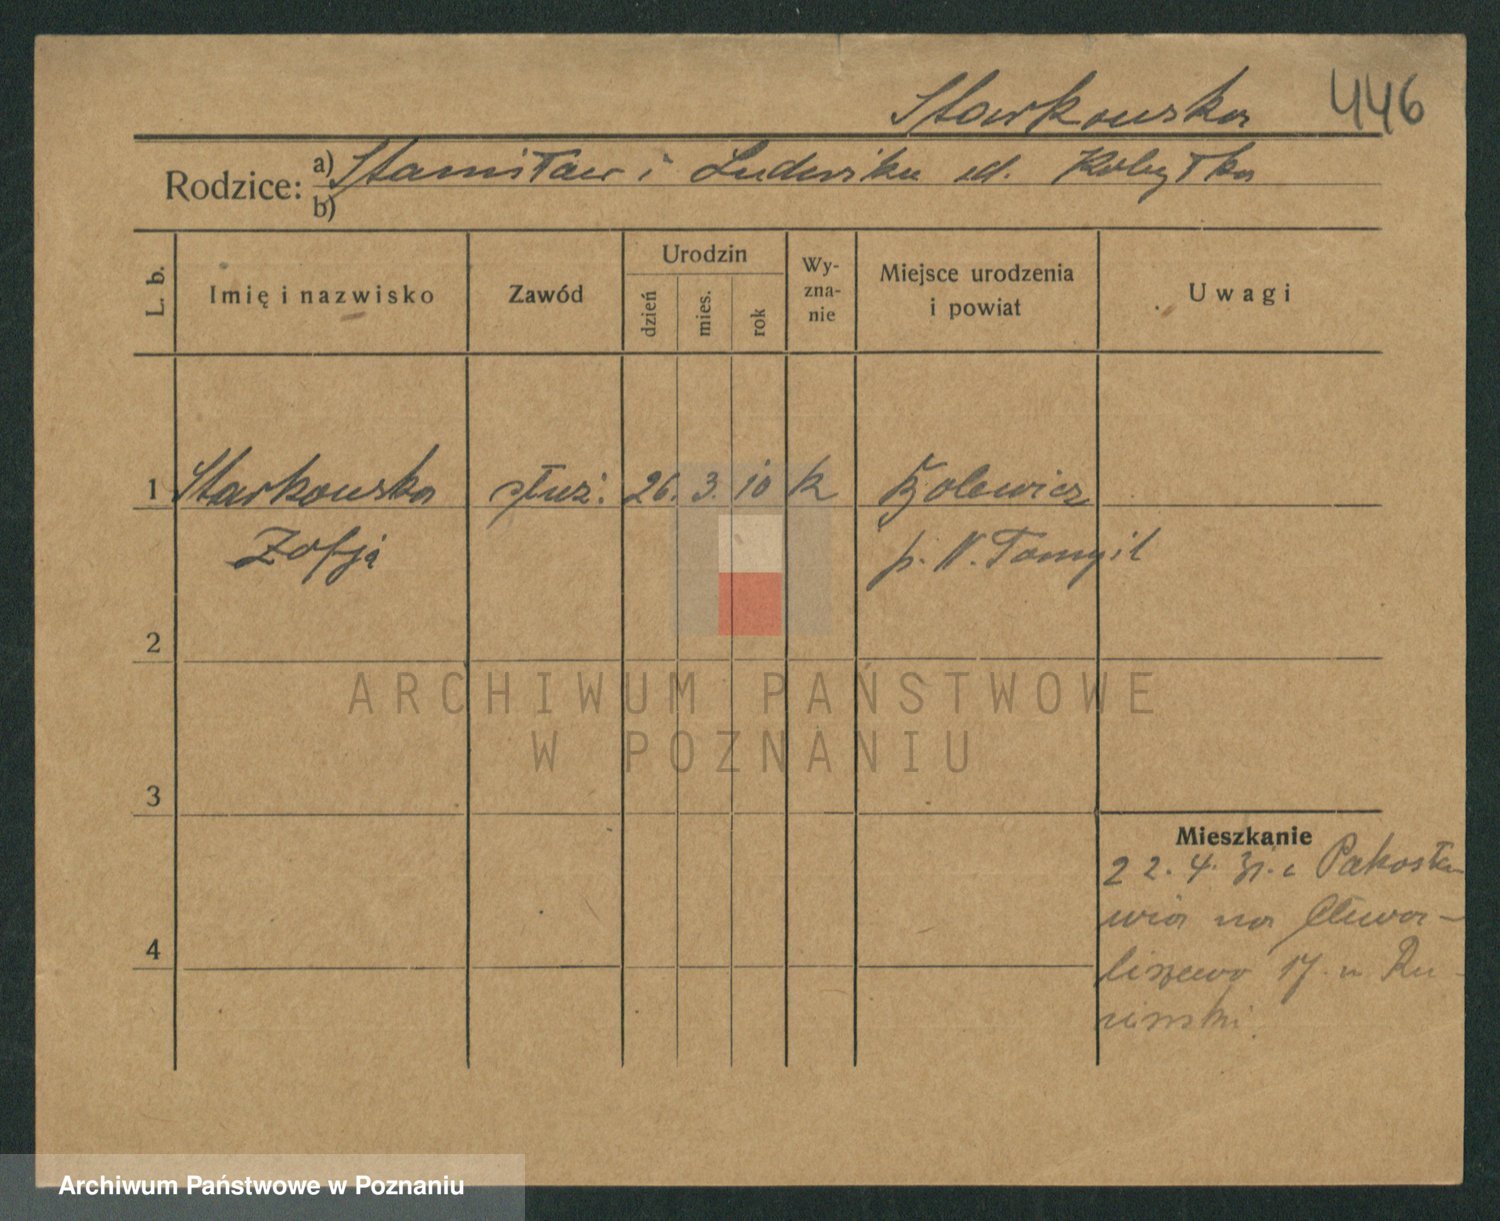 Starkowska 446
Rodzice: a) Stanisław i Ludwika ud. Kobyłka
b)
L. b.
Imię i nazwisko
Zawód
Urodzin
dzień
mies.
rok
Wy-
zna-
nie
Miejsce urodzenia
i powiat
Uwagi
1 Starkowska służ. 26. 3. 10 k Bolewicz
Zofja p. N. Tomyśl
2
3
4
Mieszkanie
22. 4. 31. z Pakosła-
wia na Chwa-
liszewo 17. u
ARCHIWUM PAŃSTWOWE
W POZNANIU
Archiwum Państwowe w Poznaniu